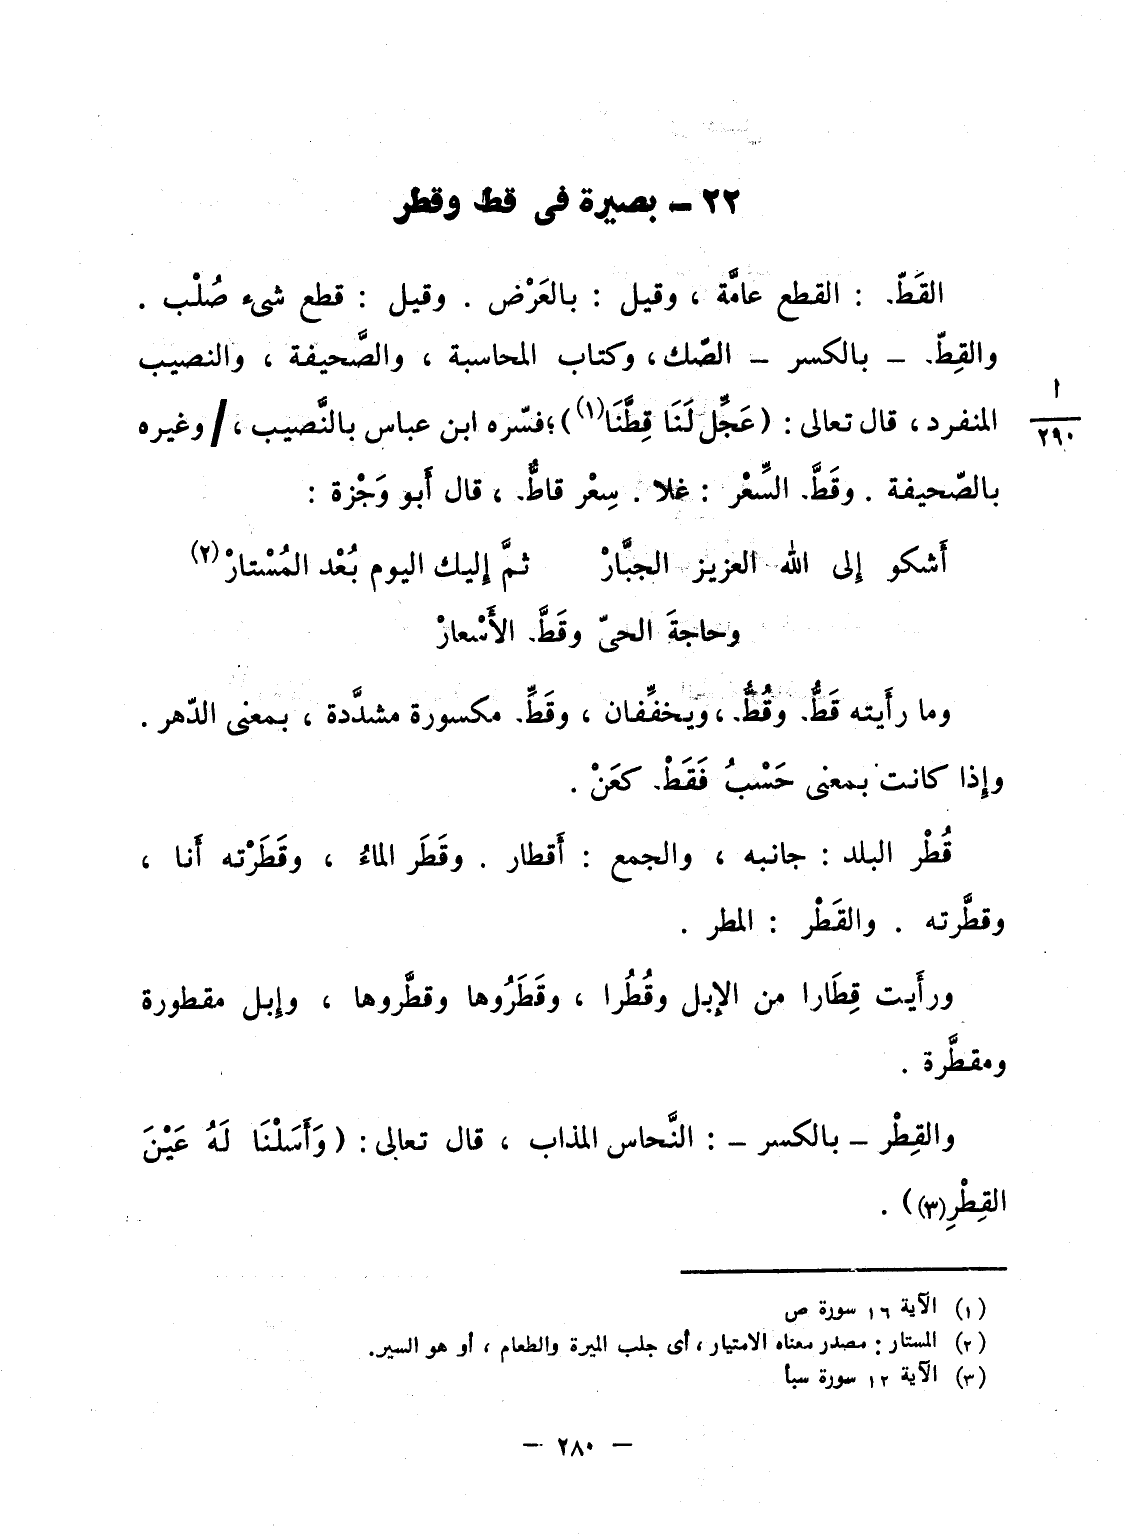 ٢٢ ــ بصيرة فى قط وقطر
القَطّ : القطع عامَّة ، وقيل : بالعَرْض . وقيل : قطع شىء صُلْب .
والقِطّ ــ بالكسر ــ الصّك، وكتاب المحاسبة ، والصَّحيفة ، والنصيب
المنفرد ، قال تعالى : (عَجِّل لَنَا قِطَّنَا(١)) ؛ فسّره ابن عباس بالنَّصيب ، / وغيره
ا
٢٩٠
بالصّحيفة . وقَطَّ السِّعْر : غلا . سِعْر قاطٌّ ، قال أَبو وَجْزة :
أَشكو إلى الله العزيز الجبَّارْ ثمَّ إِليك اليوم بُعْد المُسْتارْ(٢)
وحاجةَ الحىّ وقَطَّ الأَسْعارْ
وما رأَيته قَطُّ وقُطُّ ، ويخفَّفان ، وقَطِّ مكسورة مشدَّدة ، بمعنى الدّهر .
وإِذا كانت بمعنى حَسْبُ فَقَطْ كعَنْ .
قُطْر البلد : جانبه ، والجمع : أَقطار . وقَطَر الماءُ ، وقَطَرْته أَنا ،
وقطَّرته . والقَطْر : المطر .
ورأَيت قِطَارا من الإبل وقُطُرا ، وقَطَرُوها وقطَّروها ، وإبل مقطورة
ومقطَّرة .
والقِطْر ــ بالكسر ــ : النَّحاس المذاب ، قال تعالى : ( وَأَسَلْنَا لَهُ عَيْنَ
القِطْرِ(٣)) .
(١) الآية ١٦ سورة ص
(٢) المستار : مصدر معناه الامتيار ، أى جلب الميرة والطعام ، أو هو السير.
(٣) الآية ١٢ سورة سبأ
— ٢٨٠ —